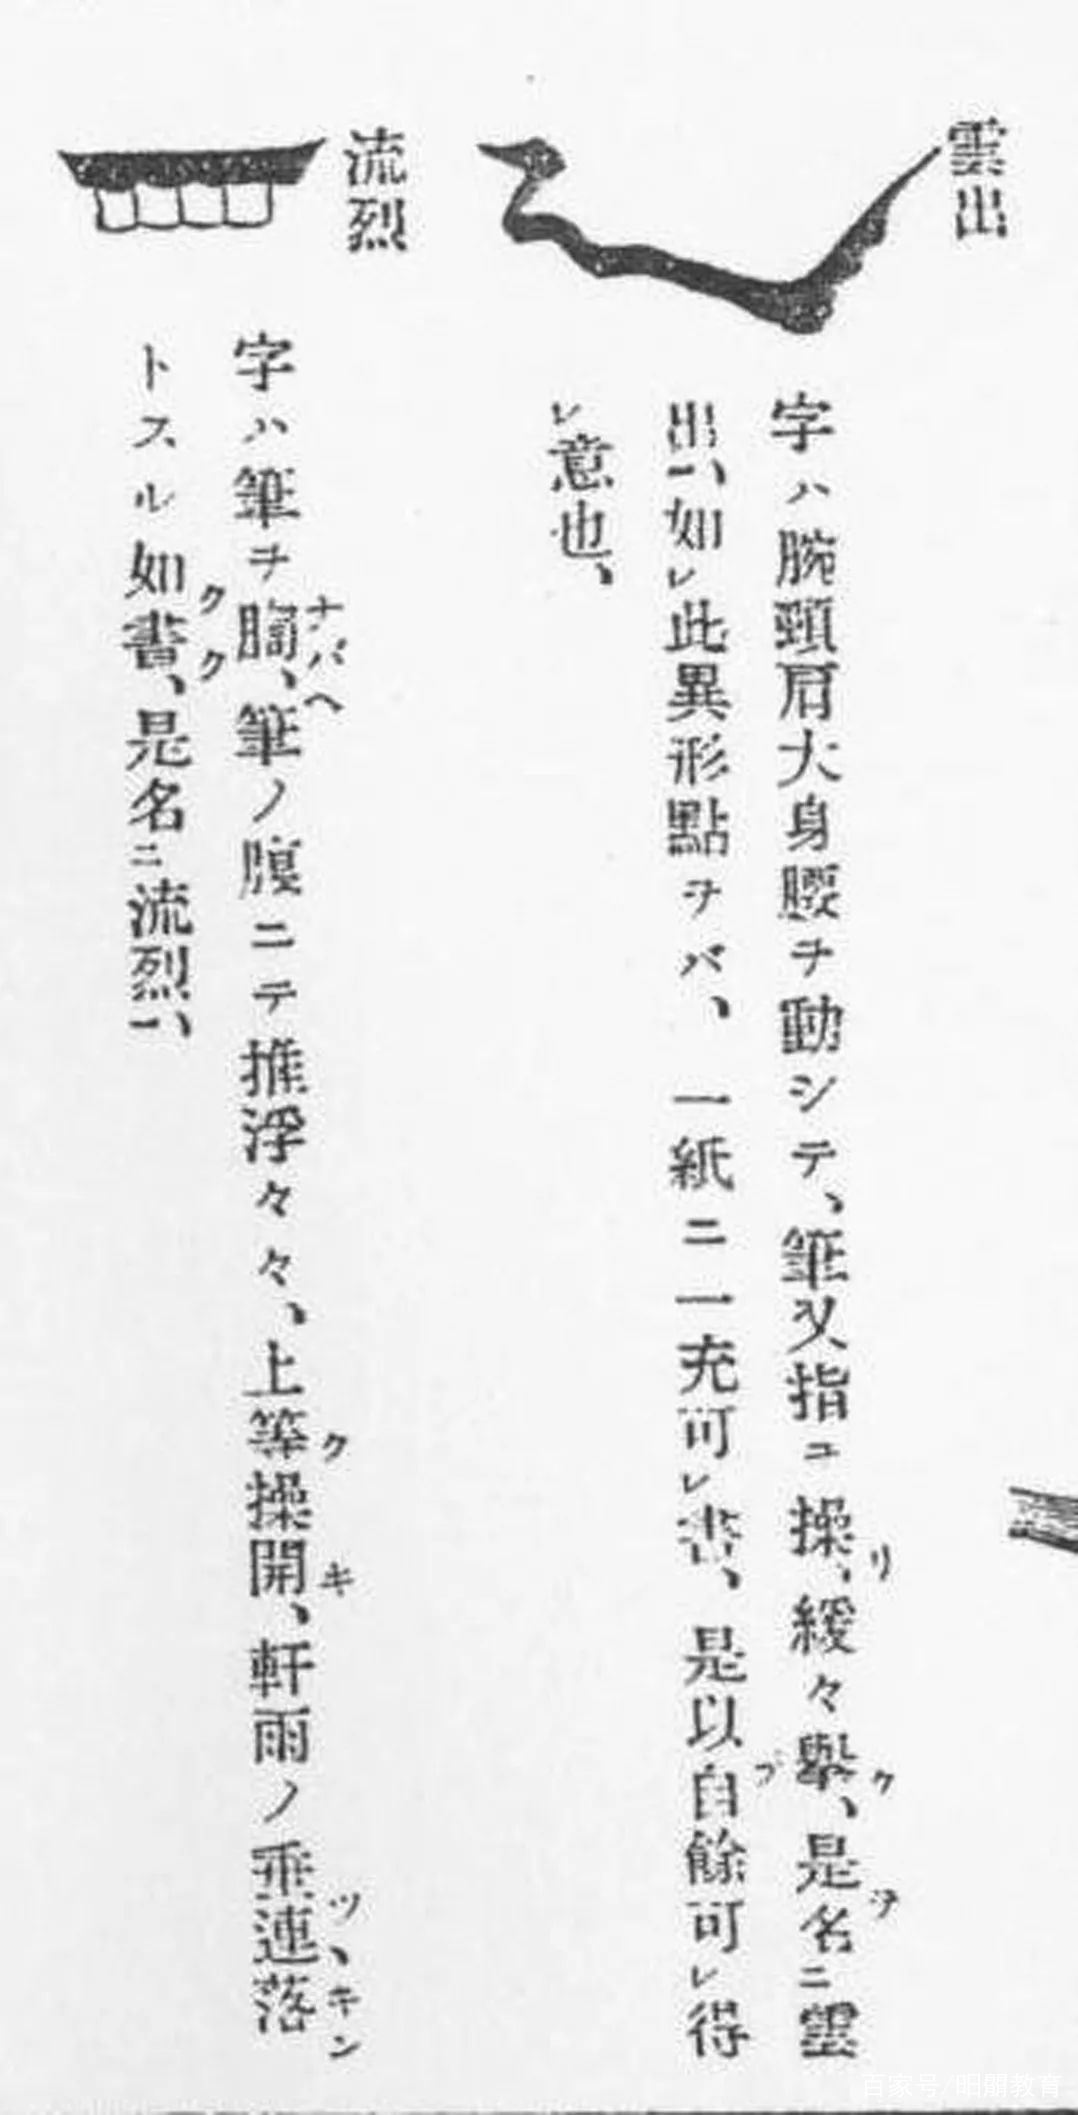 雲出
字ハ腕頸肩大身腰ヲ動シテ、筆又指ユ操リ、緩々擧ク、是名ヲ二雲
出一、如レ此異形點ヲバ、一紙ニ一充可レ書、是以自餘可レ得
レ意也、
流烈
字ハ筆ヲ ナバヘ、筆ノ腹ニテ推浮々々、上等ク操開キ、軒雨ノ垂連落ツヽキン
トスル如ク書ク、是名二流烈一、
百家号/昭朋教育